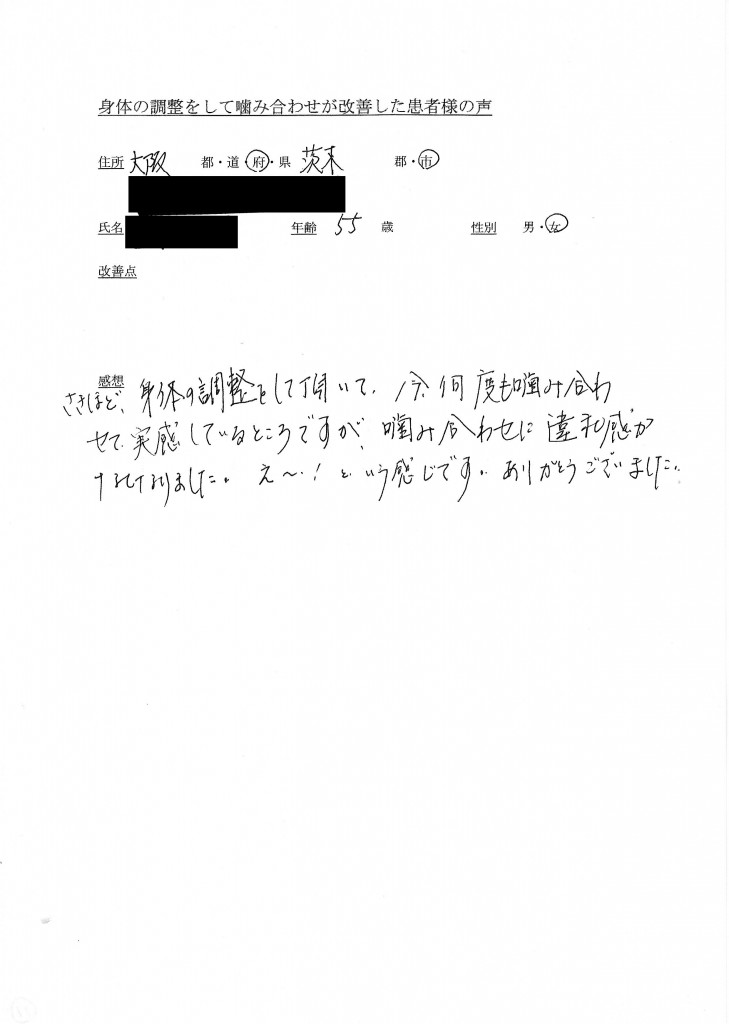 身体の調整をして噛み合わせが改善した患者様の声
住所 大阪 都・道・府・県 茨木 郡・市
氏名 年齢 55 歳 性別 男・女
改善点
感想
さきほど、身体の調整をして頂いて、今、何度も噛み合わ
せて、実感しているところですが、噛み合わせに違和感が
なくなりました。え〜!という感じです。ありがとうございました。